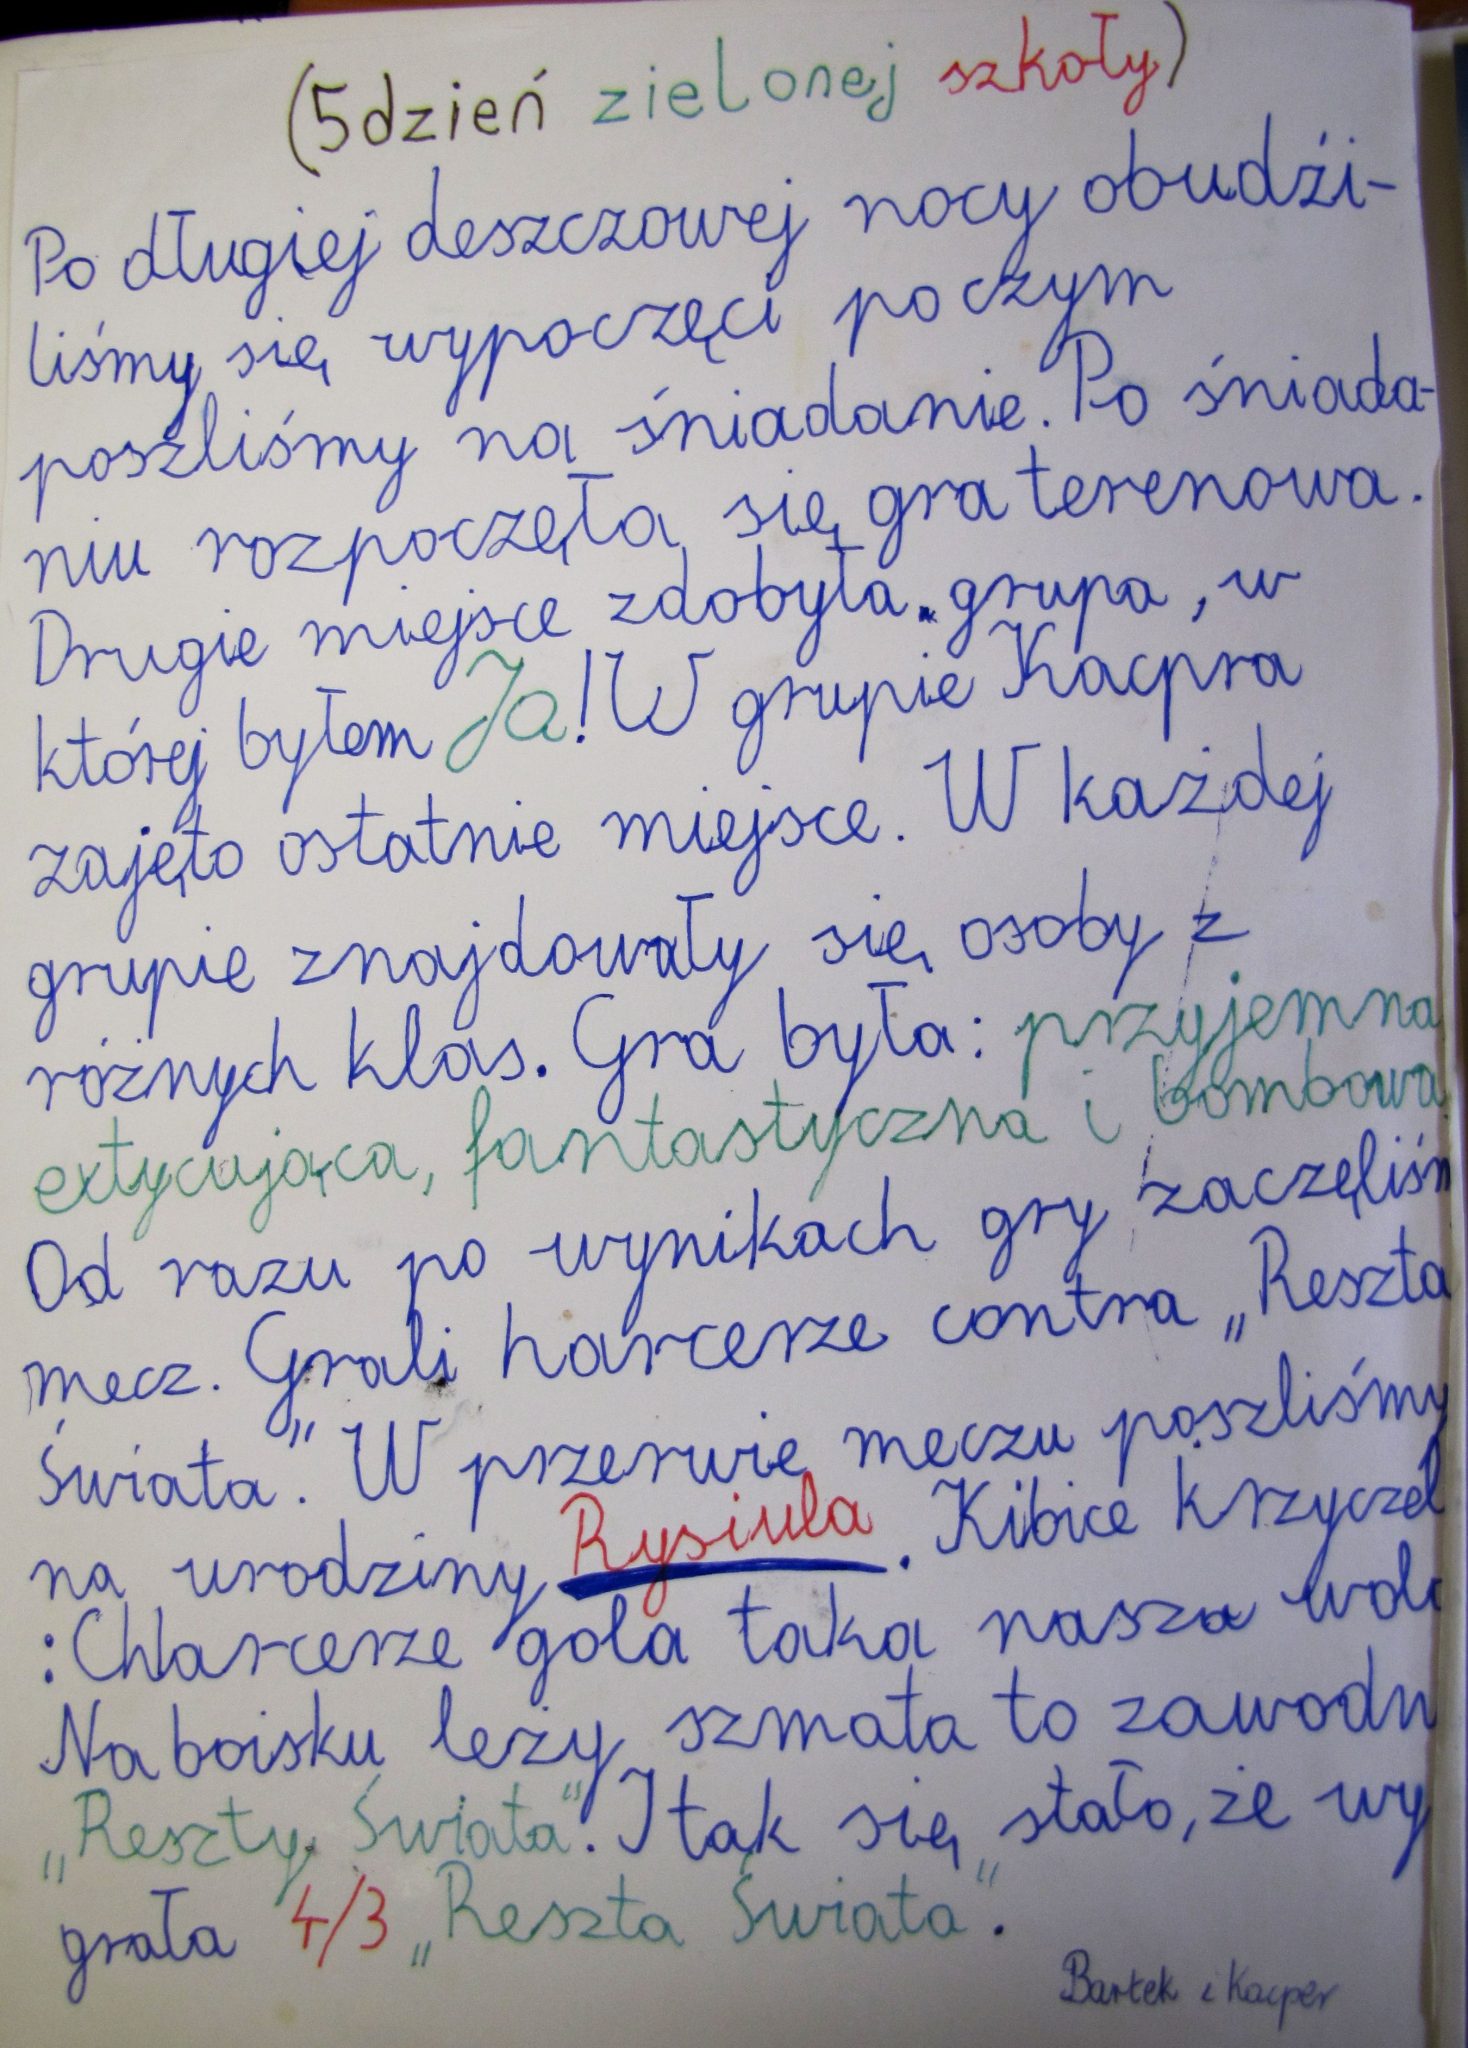 (5dzień zielonej szkoły)
Po długiej deszczowej nocy obudźi-
liśmy się wypoczęci po czym
poszliśmy na śniadanie. Po śniada-
niu rozpoczęła się gra terenowa.
Drugie miejsce zdobyła grupa, w
której byłem Ja! W grupie Kacpra
zajęto ostatnie miejsce. W każdej
grupie znajdowały się osoby z
różnych klas. Gra była: przyjemna
extycująca, fantastyczna i bombowa
Od razu po wynikach gry zaczęliśm
mecz. Grali harcerze contra „Reszta
Świata". W przerwie meczu poszliśmy
na urodziny Rysiula. Kibice krzyczel
: Chlarcerze gola taka nasza wol
Na boisku leży szmata to zawodn
„Reszty Świata". I tak się stało, że wy
grała 4/3 „Reszta Świata".
Bartek i Kacper